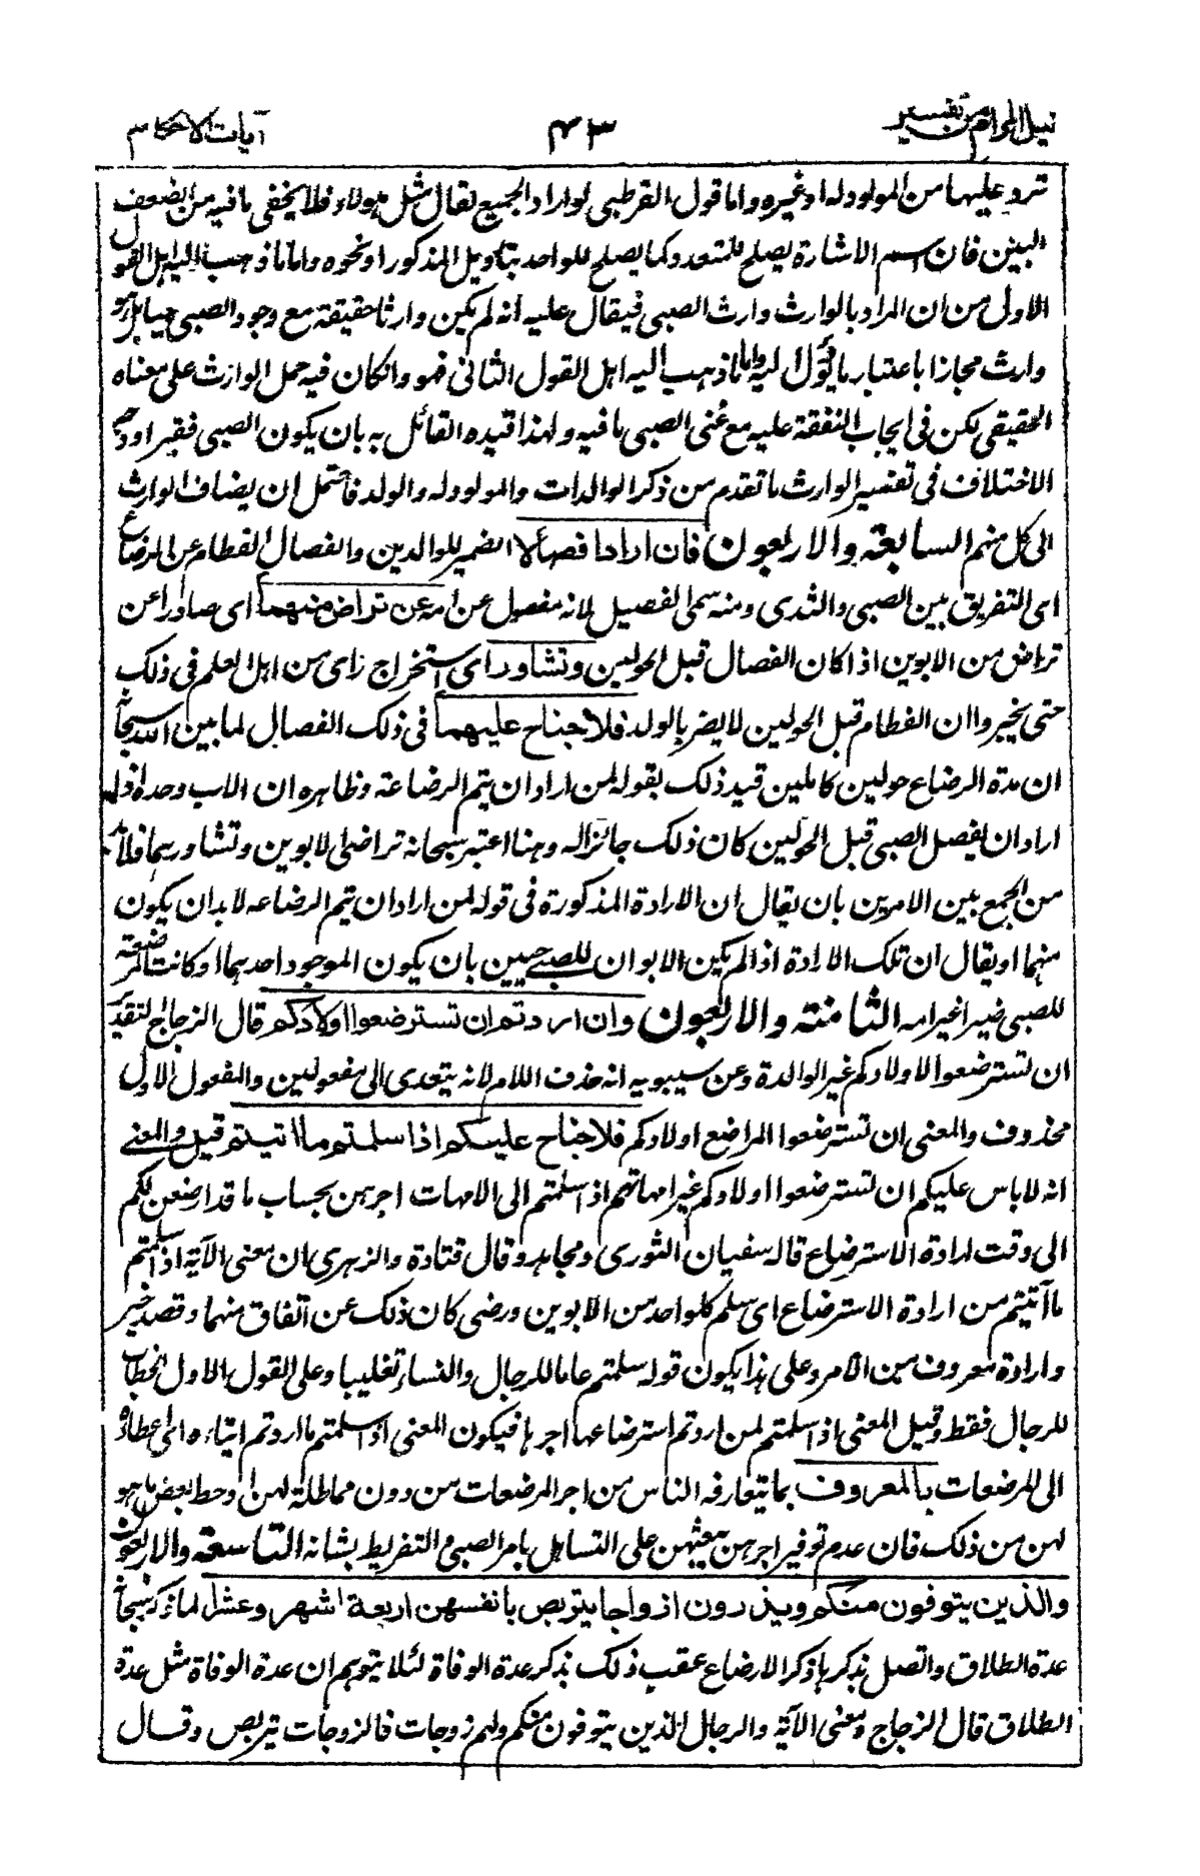 نيل المرام من تفسير ٤٣ آيات الاحكام
ترد عليها من المولود له او غيره واما قول القرطبى لو اراد الجميع لقال مثل هولاء فلا يخفى ما فيه من الضعف
البين فان اسم الاشارة يصلح للمتعدد كما يصلح للواحد بتاويل المذكور او نحوه واما ما ذهب اليه اهل القول
الاول من ان المراد بالوارث وارث الصبى فيقال عليه انه لم يكن وارثا حقيقة مع وجود الصبى حيا بل هو
وارث مجازا باعتبار ما يؤل اليه واما ما ذهب اليه اهل القول الثانى فهو وان كان فيه حمل الوارث على معناه
الحقيقى لكن فى ايجاب النفقة عليه مع غنى الصبى ما فيه ولهذا قيده القائل به بان يكون الصبى فقيرا ووجه
الاختلاف فى تفسير الوارث ما تقدم من ذكر الوالدات والمولود له والولد فاحتمل ان يضاف الوارث
الى كل منهم السابعة والاربعون فان ارادا فصالا الضمير للوالدين والفصال الفطام عن الرضاع
اى التفريق بين الصبى والثدى ومنه سمى الفصيل لانه مفصول عن امه عن تراض منهما اى صادرا عن
تراض من الابوين اذا كان الفصال قبل الحولين وتشاور اى استخراج راى من اهل العلم فى ذلك
حتى يخبروا ان الفطام قبل الحولين لا يضر بالولد فلا جناح عليهما فى ذلك الفصال لما بين الله سبحانه
ان مدة الرضاع حولين كاملين قيد ذلك بقوله لمن اراد ان يتم الرضاعة وظاهره ان الاب وحده اذا
اراد ان يفصل الصبى قبل الحولين كان ذلك جائزا له وهنا اعتبر سبحانه تراضى الابوين وتشاورهما فلا بد
من الجمع بين الامرين بان يقال ان الارادة المذكورة فى قوله لمن اراد ان يتم الرضاعه لا بد ان يكون
منهما او يقال ان تلك الارادة اذا لم يكن الابوان للصبى حيين بان يكون الموجود احدهما او كانت المرضعة
للصبى ضيرا غير امه الثامنة والاربعون وان اردتم ان تسترضعوا اولادكم قال الزجاج التقدير
ان تسترضعوا لاولادكم غير الوالدة وعن سيبويه انه حذف اللام لانه يتعدى الى مفعولين والمفعول الاول
محذوف والمعنى ان تسترضعوا المراضع اولادكم فلا جناح عليكم اذا سلمتم ما اتيتم قيل والمعنى
انه لا باس عليكم ان تسترضعوا اولادكم غير امهاتهم اذا سلمتم الى الامهات اجرهن بحساب ما قد ارضعن لكم
الى وقت ارادة الاسترضاع قاله سفيان الثورى ومجاهد وقال قتادة والزهرى ان معنى الآية اذا سلمتم
ما آتيتم من ارادة الاسترضاع اى سلم كل واحد من الابوين ورضى كان ذلك عن اتفاق منهما وقصد خير
وارادة معروف من الامر وعلى هذا يكون قوله سلمتم عاما للرجال والنساء تغليبا وعلى القول الاول الخطاب
للرجال فقط وقيل المعنى اذا سلمتم لمن اردتم استرضاعها اجرها فيكون المعنى اذا سلمتم ما اردتم ايتاءه اى اعطاؤه
الى المرضعات بالمعروف بما يتعارفه الناس من اجر المرضعات من دون مماطلة لهن او حط بعض ما هو
لهن من ذلك فان عدم توفير اجرهن يبعثهن على التساهل بامر الصبى والتفريط بشانه التاسعة والاربعون
والذين يتوفون منكم ويذرون ازواجا يتربص بانفسهن اربعة اشهر وعشرا لما ذكر سبحانه
عدة الطلاق واتصل بذكرها ذكر الارضاع عقب ذلك بذكر عدة الوفاة لئلا يتوهم ان عدة الوفاة مثل عدة
الطلاق قال الزجاج ومعنى الآية والرجال الذين يتوفون منكم ولهم زوجات فالزوجات يتربص وقال